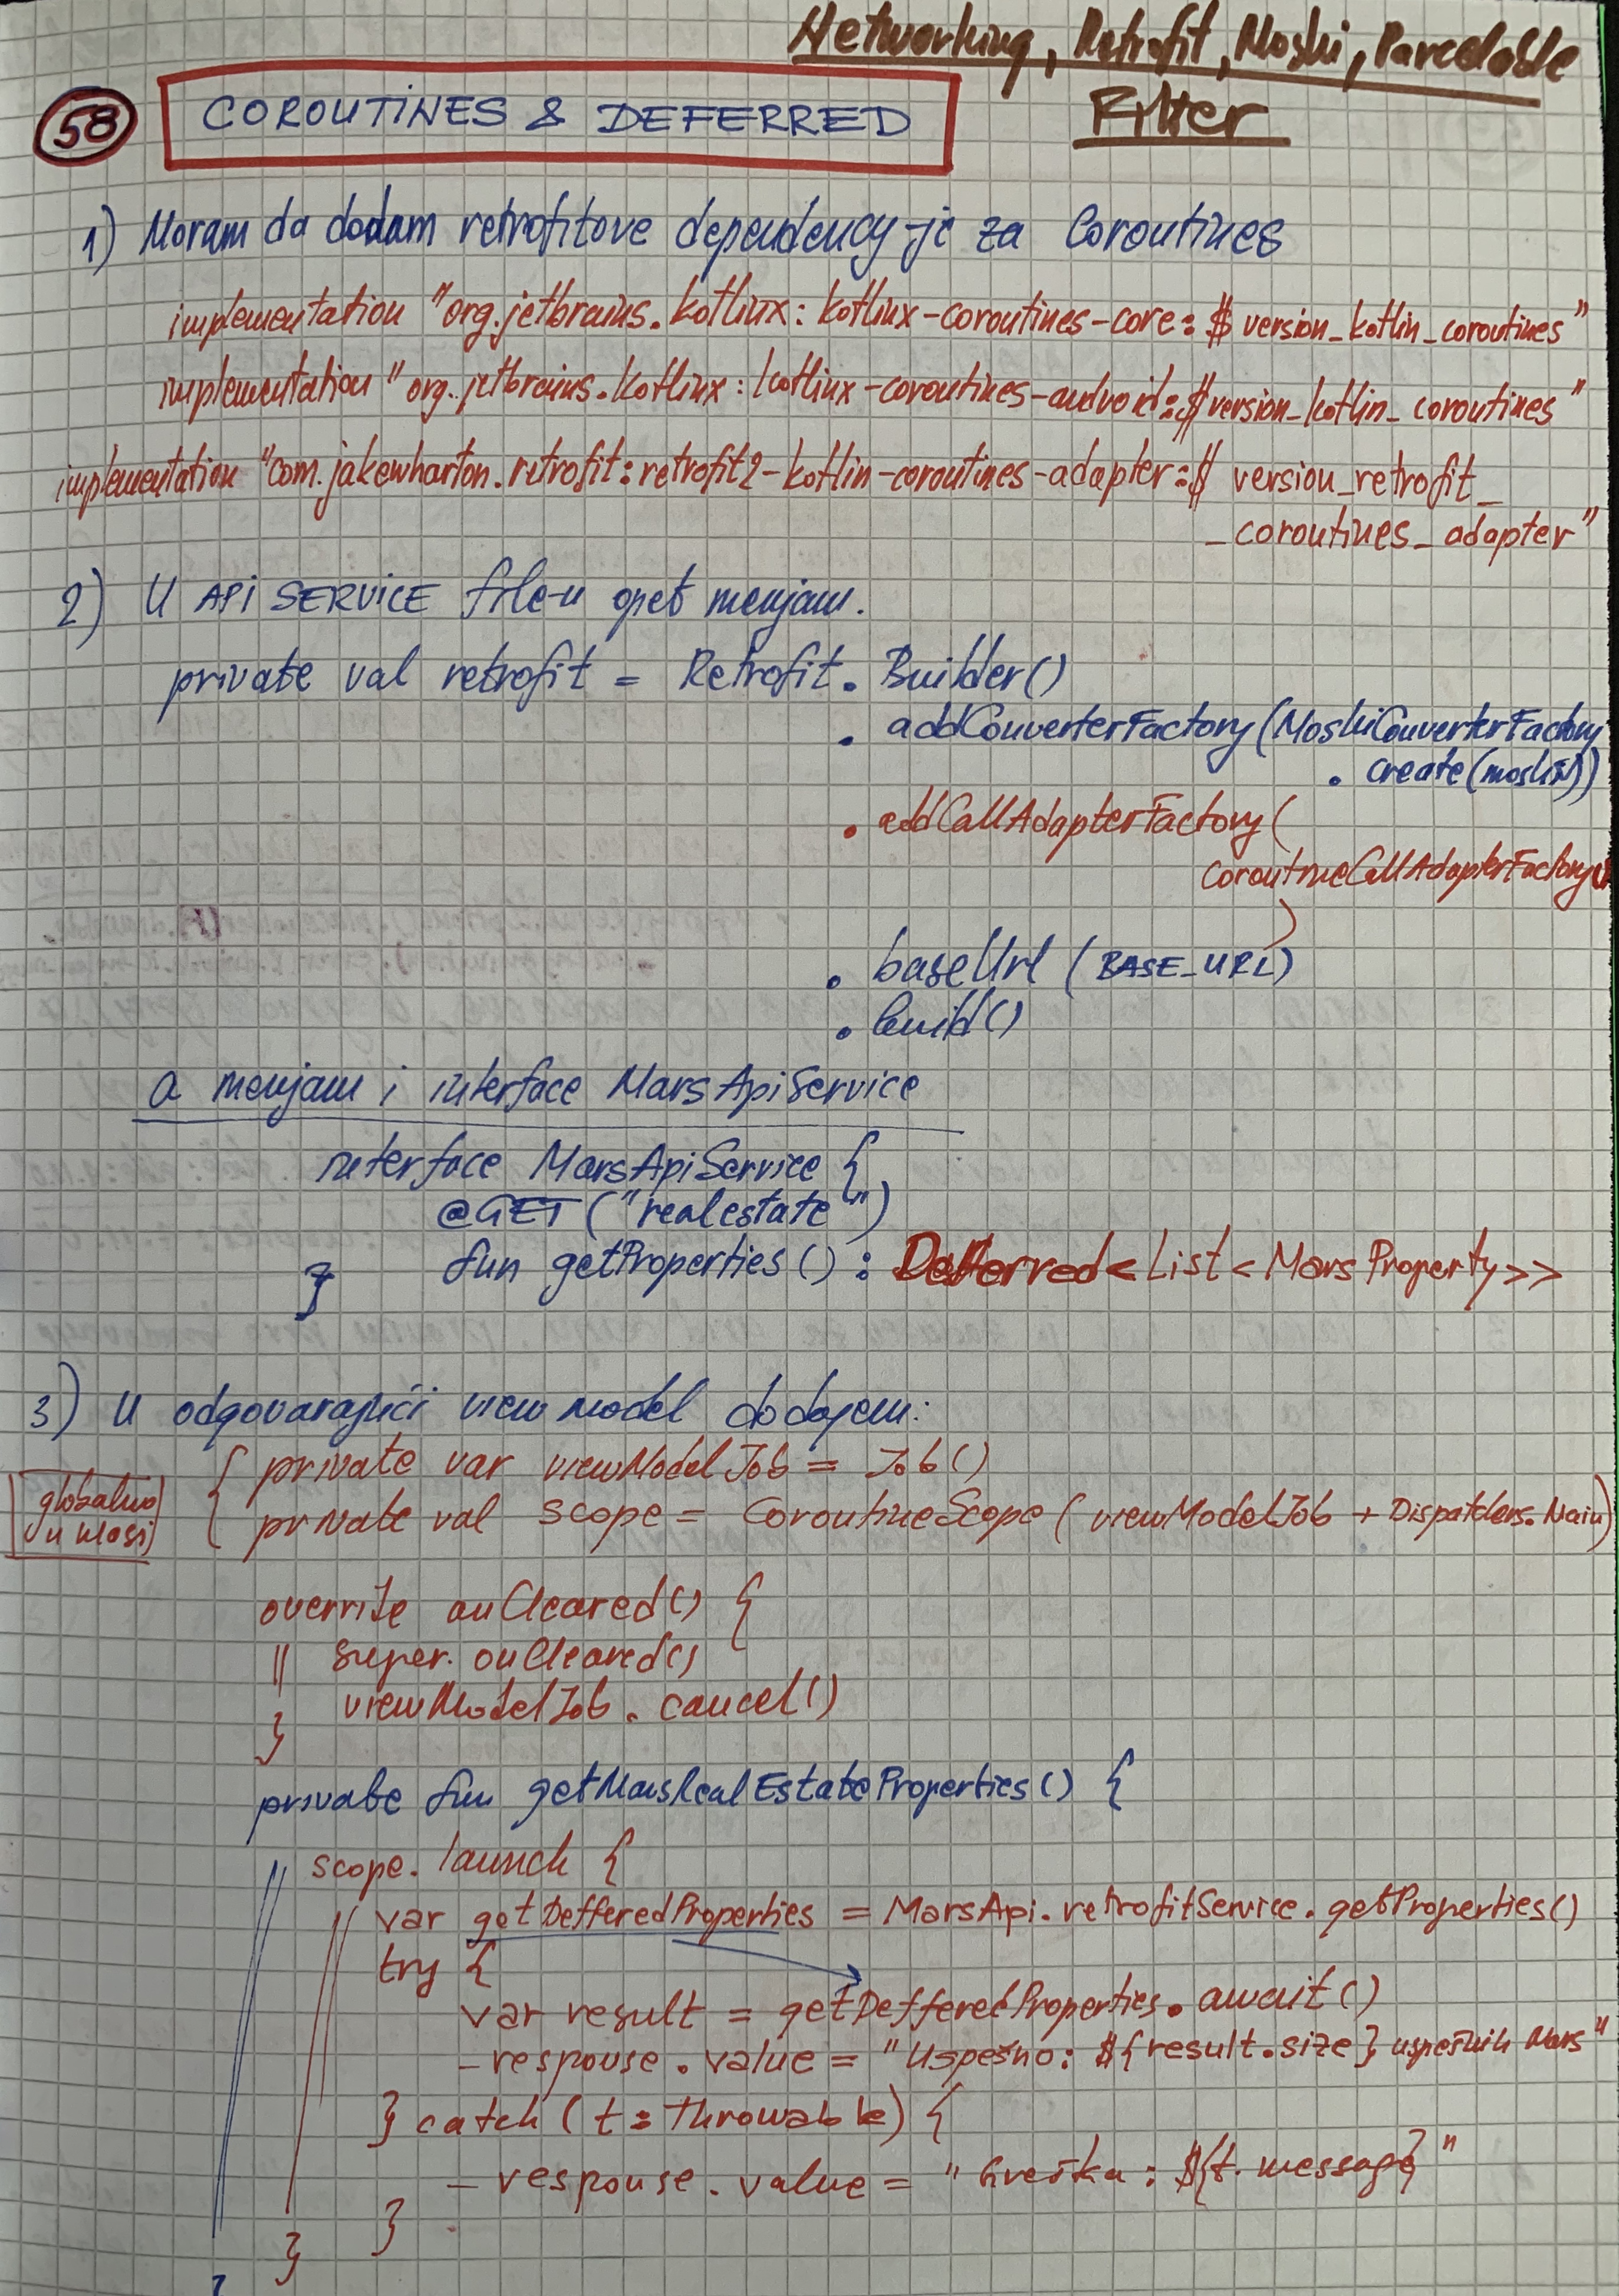 Networking, Retrofit, Moshi, Parcelable
Filter
58
COROUTINES & DEFERRED
1) Moram da dodam retrofitove dependency-je za Coroutines
implementation "org.jetbrains.kotlinx:kotlinx-coroutines-core:$version_kotlin_coroutines"
implementation "org.jetbrains.kotlinx:kotlinx-coroutines-android:$version_kotlin_coroutines"
implementation "com.jakewharton.retrofit:retrofit2-kotlin-coroutines-adapter:$version_retrofit_
_coroutines_adapter"
2) U API SERVICE file-u opet menjam.
private val retrofit = Retrofit.Builder()
.addConverterFactory(MoshiConverterFactory
.create(moshi))
.addCallAdapterFactory(
CoroutineCallAdapterFactory()
)
.baseUrl (BASE_URL)
.build()
a menjam i interface MarsApiService
interface MarsApiService {
@GET("realestate")
fun getProperties(): Deferred<List<MarsProperty>>
}
3) U odgovarajući view model dodajem:
globalno
u klasi
{ private var viewModelJob = Job()
private val scope = CoroutineScope(viewModelJob + Dispatchers.Main)
override onCleared() {
super.onCleared()
viewModelJob.cancel()
}
private fun getMarsRealEstateProperties() {
scope.launch {
var getDefferedProperties = MarsApi.retrofitService.getProperties()
try {
var result = getDefferedProperties.await()
_response.value = "Uspešno: ${result.size} uspešnih Mars"
} catch (t: Throwable) {
_response.value = "Greška: ${t.message}"
}
}
}